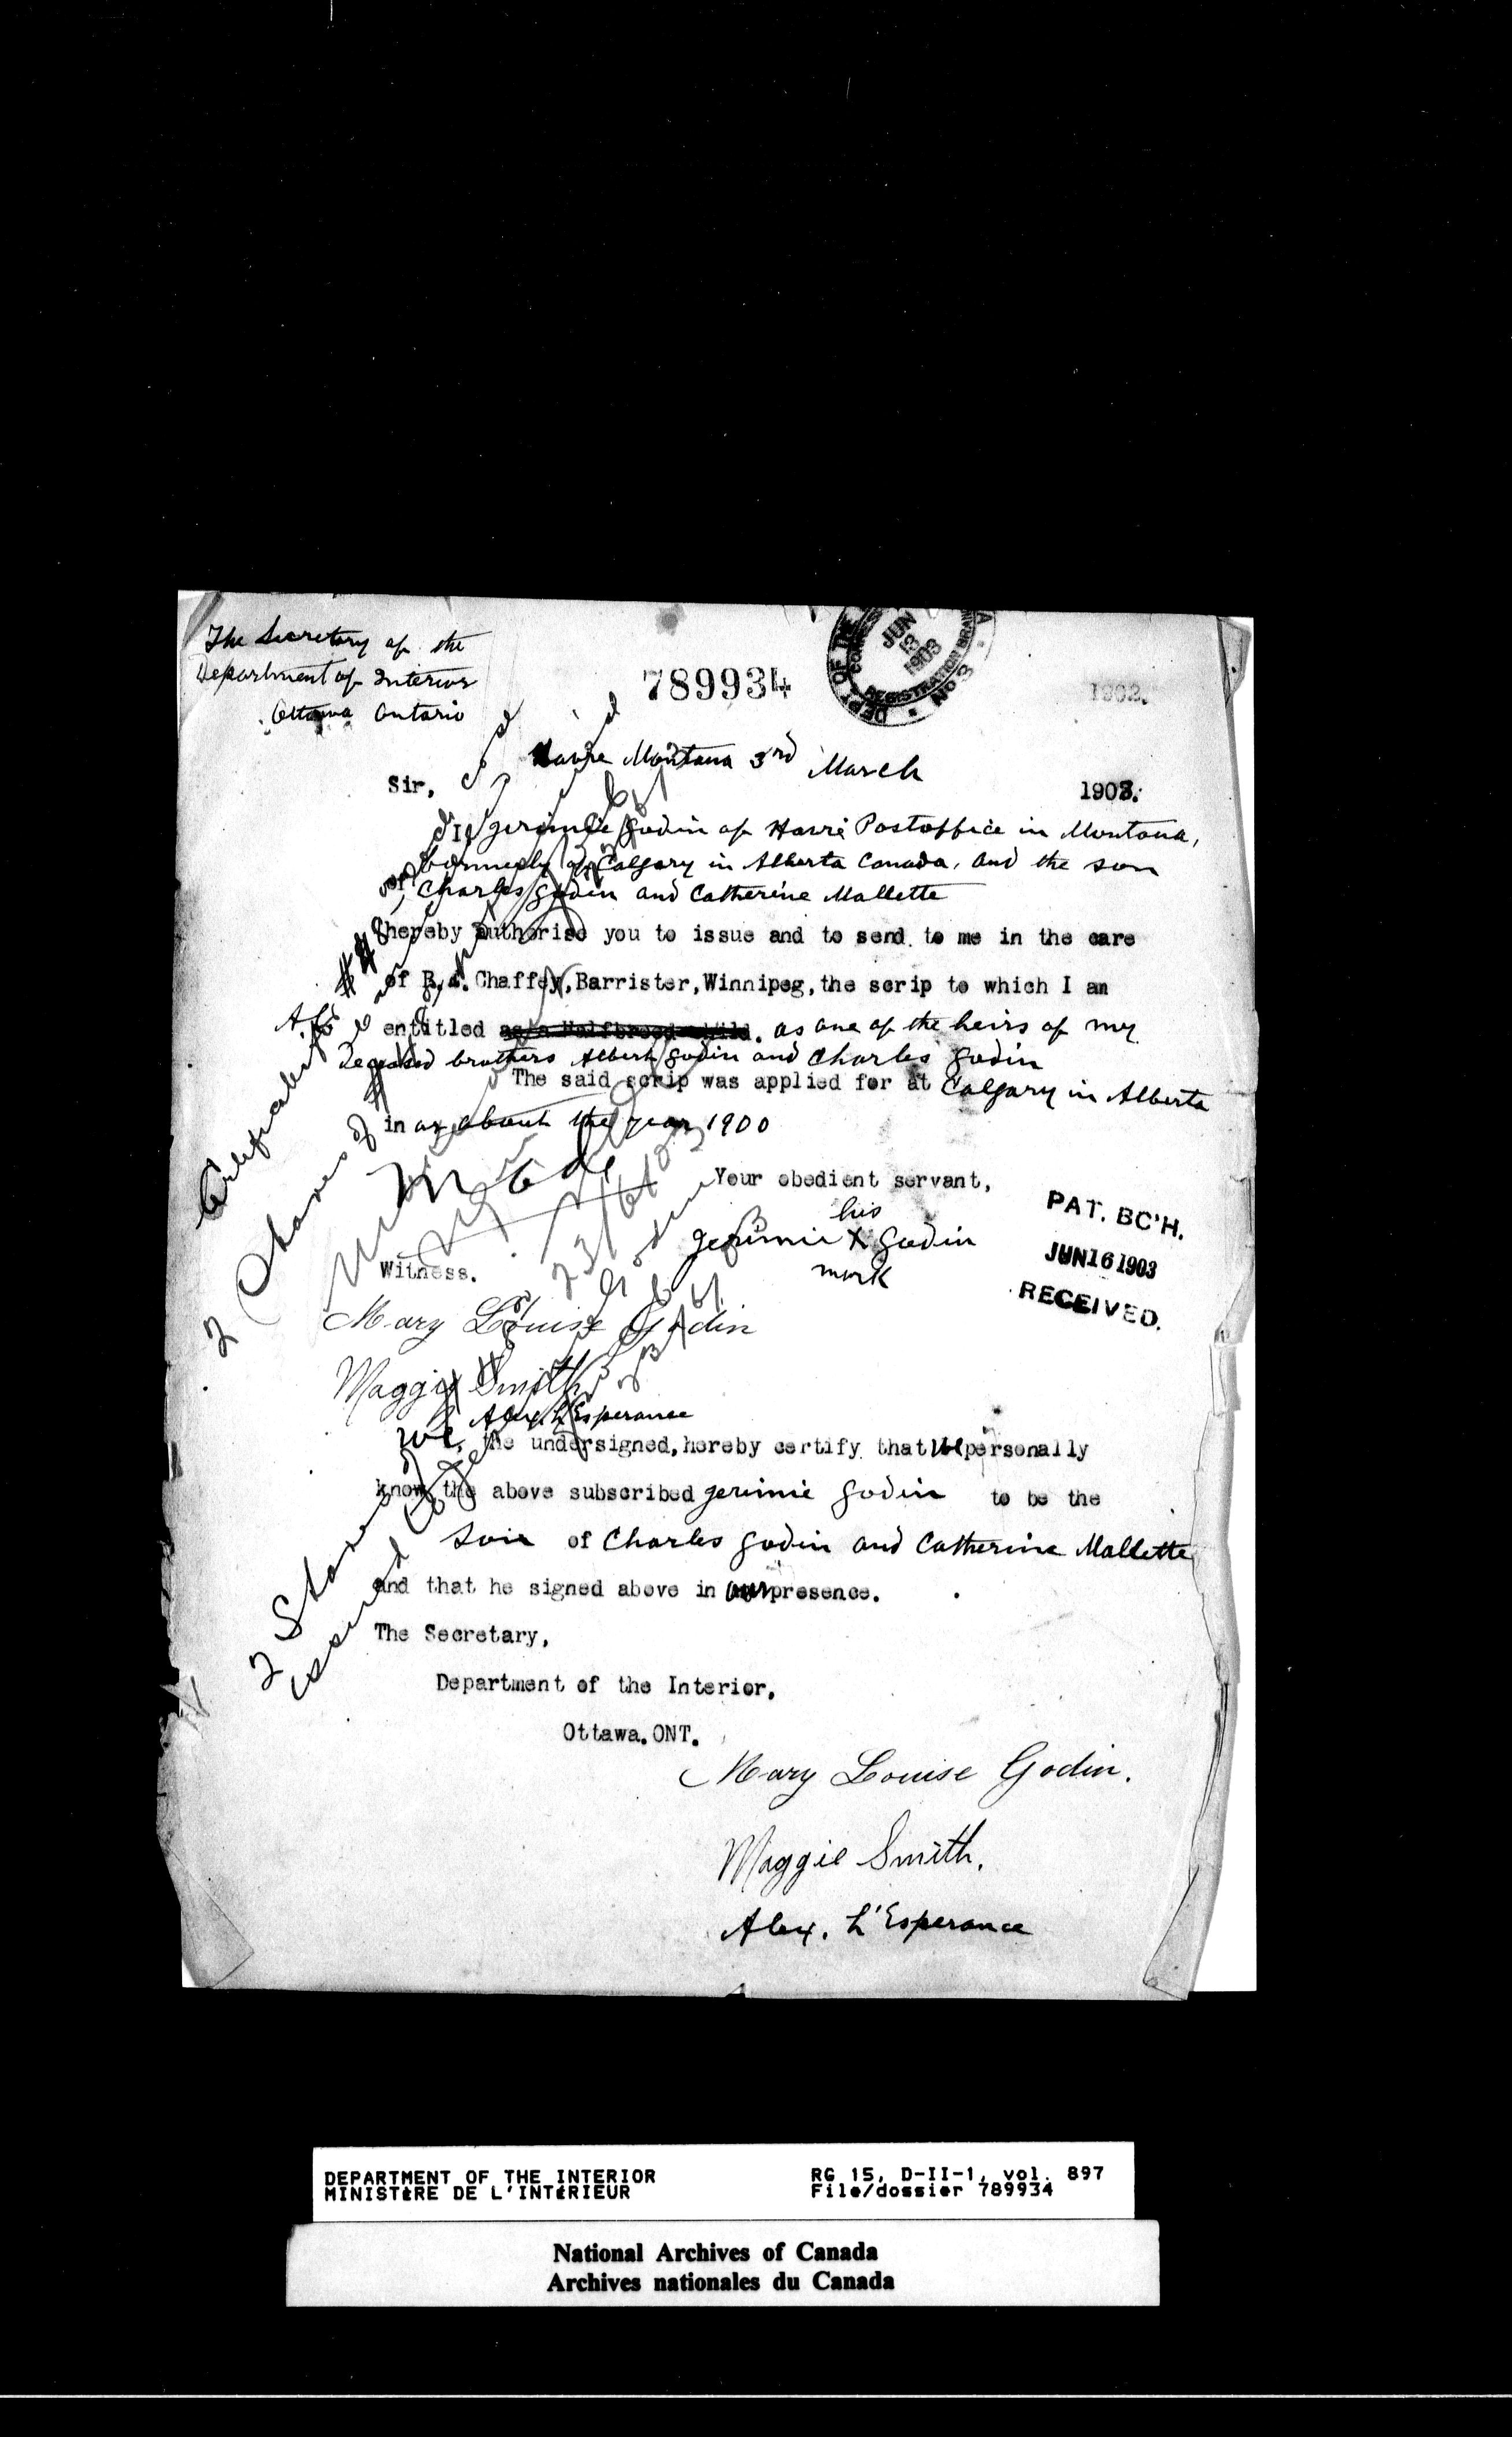 The Secretary of the
Department of Interior
Ottawa Ontario
789934
DEPT OF THE
REGISTRATION BRAN
No 3
JUN
13
1903
1902.
Havre Montana 3rd March
1903.
Sir,
I, Jerimie Godin of Havre Postoffice in Montana,
formerly of Calgary in Alberta Canada, and the son
of, Charles Godin and Catherine Mallette
hereby authorise you to issue and to send to me in the care
of Chaffey, Barrister, Winnipeg, the scrip to which I am
entitled as a Halfbreed child. as one of the heirs of my
Deceased brothers Albert Godin and Charles Godin
The said scrip was applied for at Calgary in Alberta
in or about the year 1900
Your obedient servant,
his
Jerimie X Godin
mark
PAT. BC'H.
JUN 16 1903
RECEIVED.
Witness.
Mary Louise Godin
Maggie Smith
Alex. L'Esperance
We, the undersigned, hereby certify that We personally
know the above subscribed Jerimie Godin to be the
son of Charles Godin and Catherine Mallette
and that he signed above in our presence.
The Secretary,
Department of the Interior,
Ottawa. ONT.
Mary Louise Godin.
Maggie Smith.
Alex. L'Esperance
2 Shares of
2 Shares
issued
DEPARTMENT OF THE INTERIOR
MINISTÈRE DE L'INTÉRIEUR
RG 15, D-II-1, vol. 897
File/dossier 789934
National Archives of Canada
Archives nationales du Canada